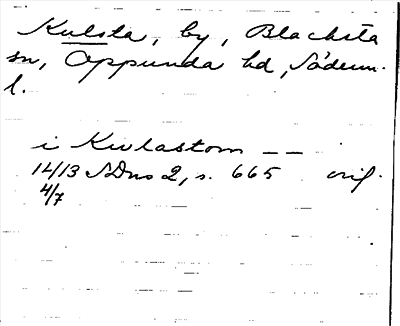 Kulsta, by, Blacksta
sn, Oppunda hd, Söderm.
l.
i Kulastom – –
1413 SDns 2, s. 665 orig.
4/7